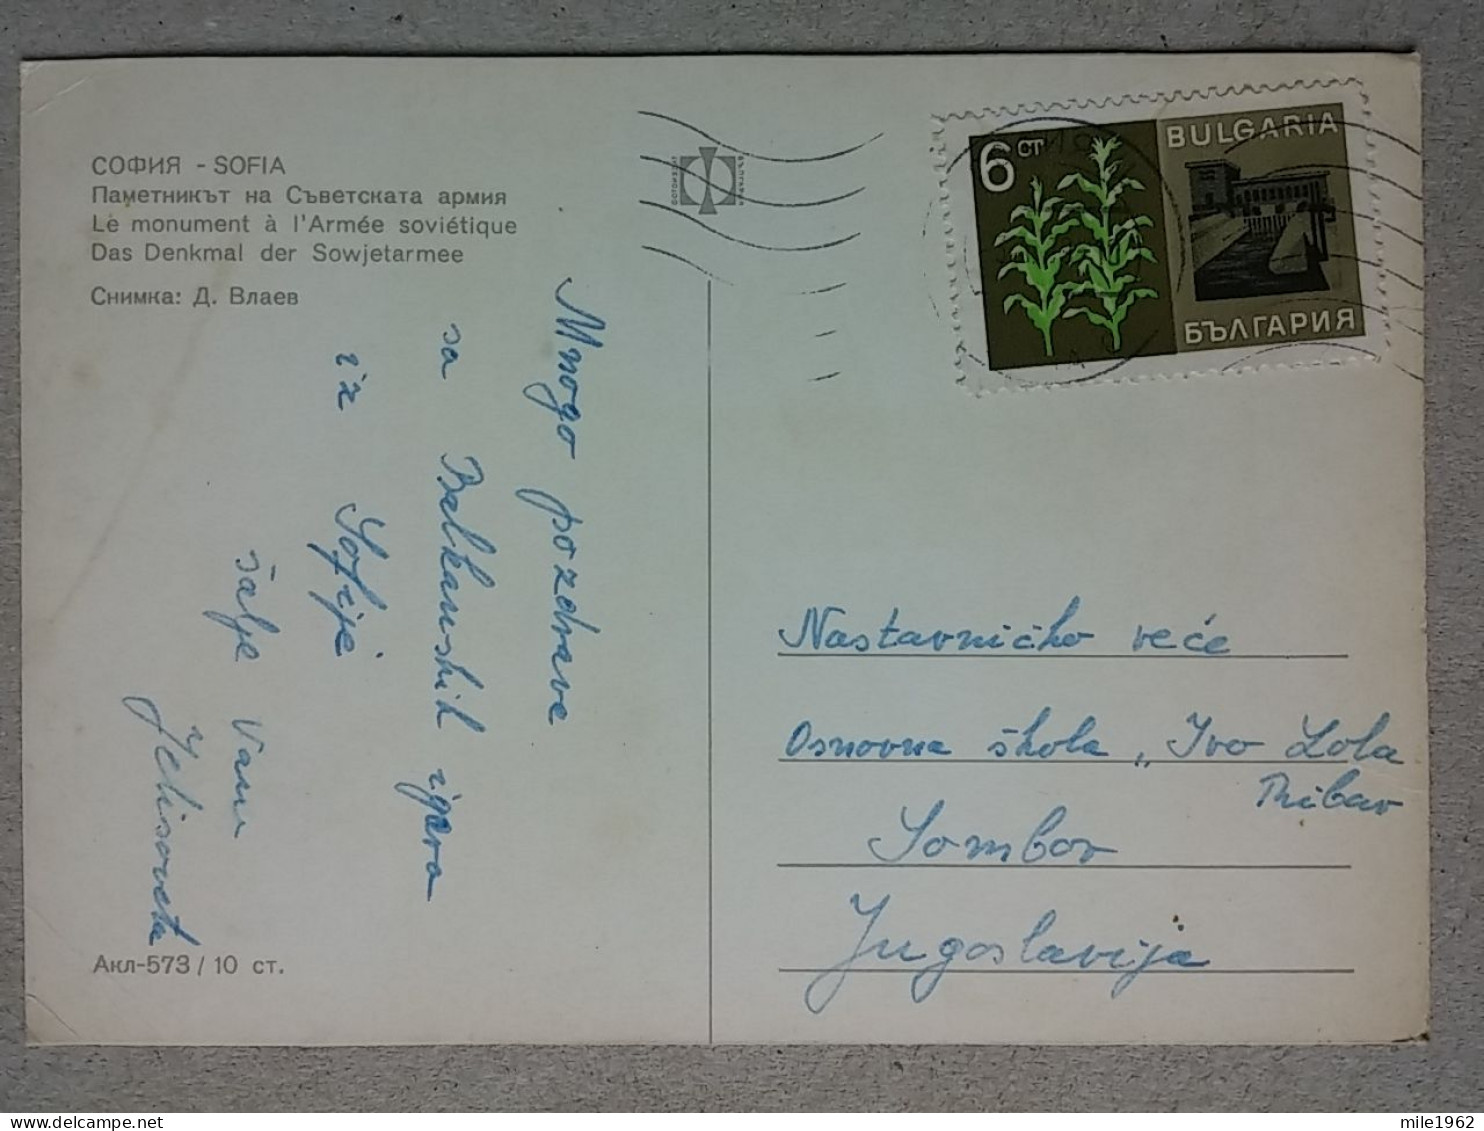 СОФИЯ - SOFIA
Паметникът на Съветската армия
Le monument à l'Armée soviétique
Das Denkmal der Sowjetarmee
Снимка: Д. Влаев
Mnogo pozdrava
sa Balkanskih igara
iz Sofije
šalje Vam
Jelisaveta
Акл-573 / 10 ст.
6 СТ
BULGARIA
БЪЛГАРИЯ
Nastavničko veće
Osnovna škola „Ivo Lola
Ribar
Sombor
Jugoslavija
mile1962